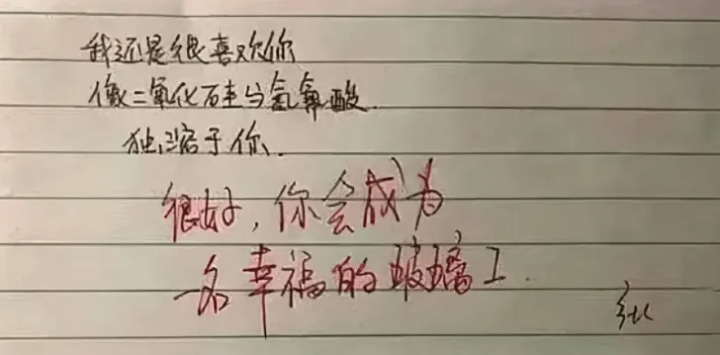 我还是很喜欢你
像二氧化硅与氢氟酸
独溶于你.
很好，你会成为
一名幸福的玻璃工.